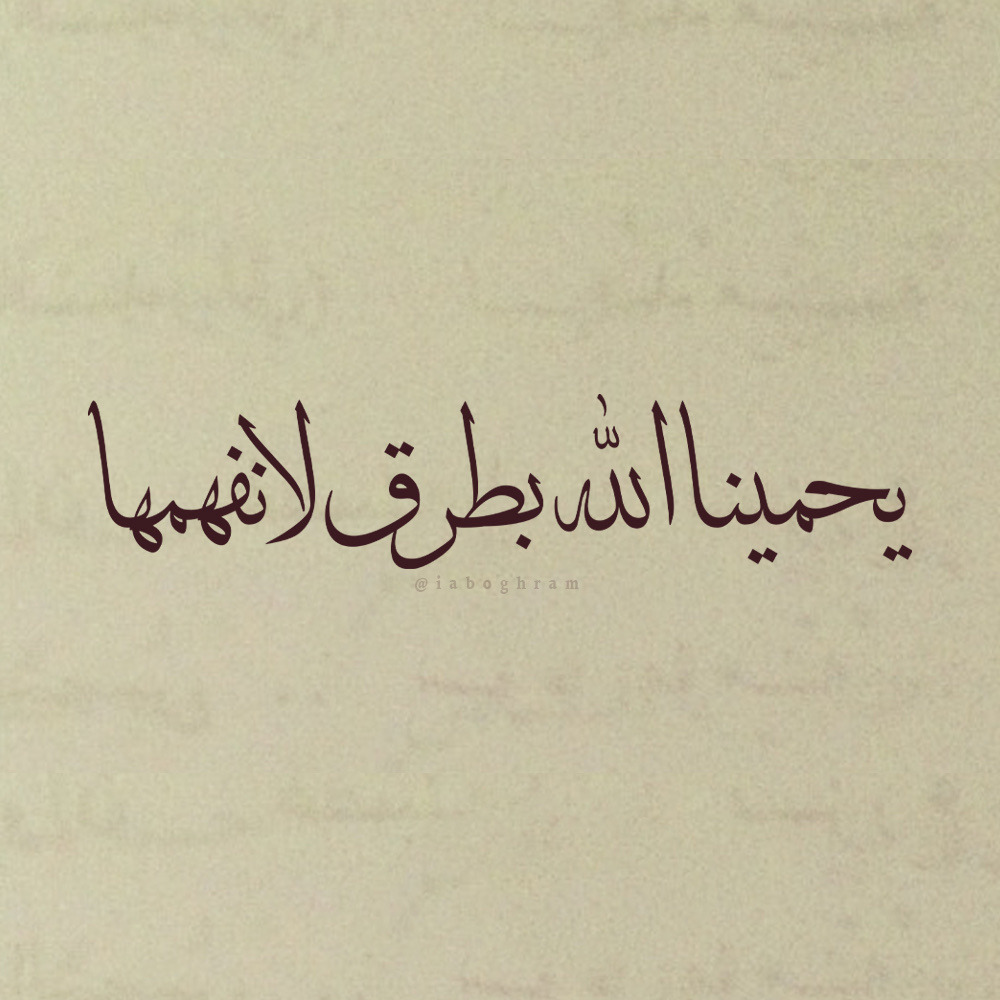 يحمينا الله بطرق لا نفهمها
@iaboghram